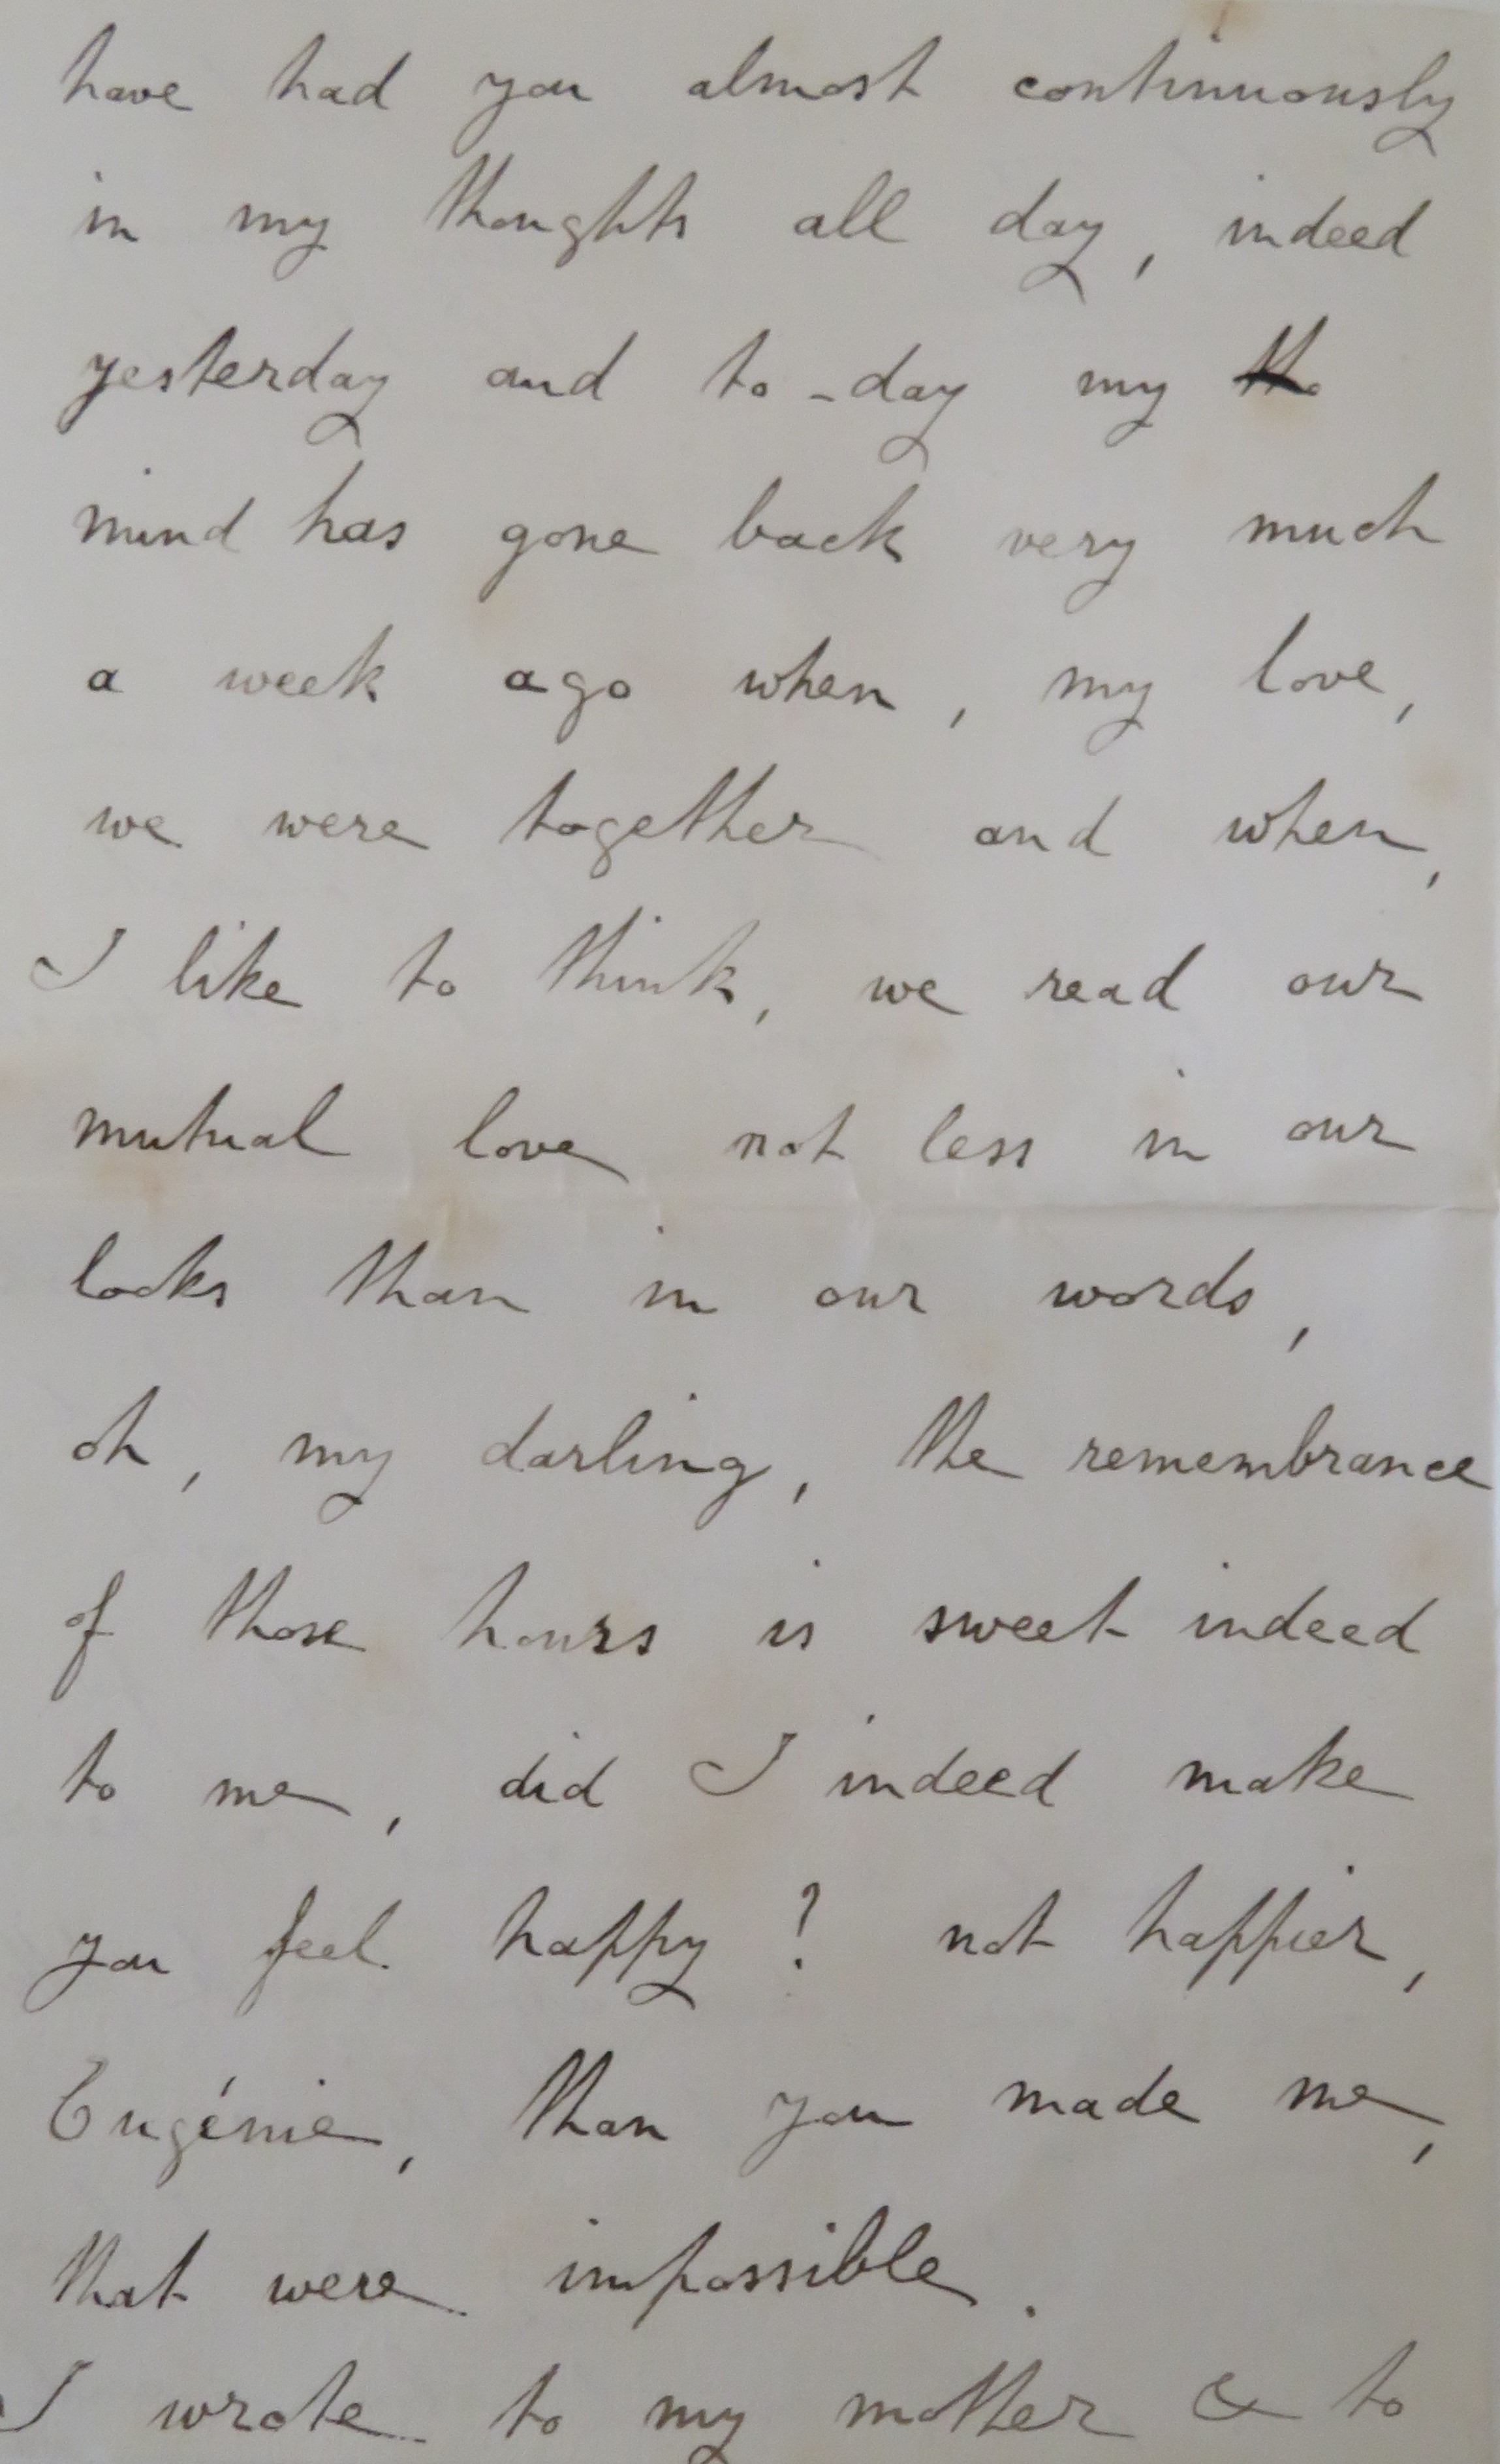 have had you almost continuously
in my thoughts all day, indeed
yesterday and to-day my tho
mind has gone back very much
a week ago when, my love,
we were together and when,
I like to think, we read our
mutual love not less in our
looks than in our words,
oh, my darling, the remembrance
of those hours is sweet indeed
to me, did I indeed make
you feel happy? not happier,
Eugénie, than you made me,
that were impossible.
I wrote to my mother & to